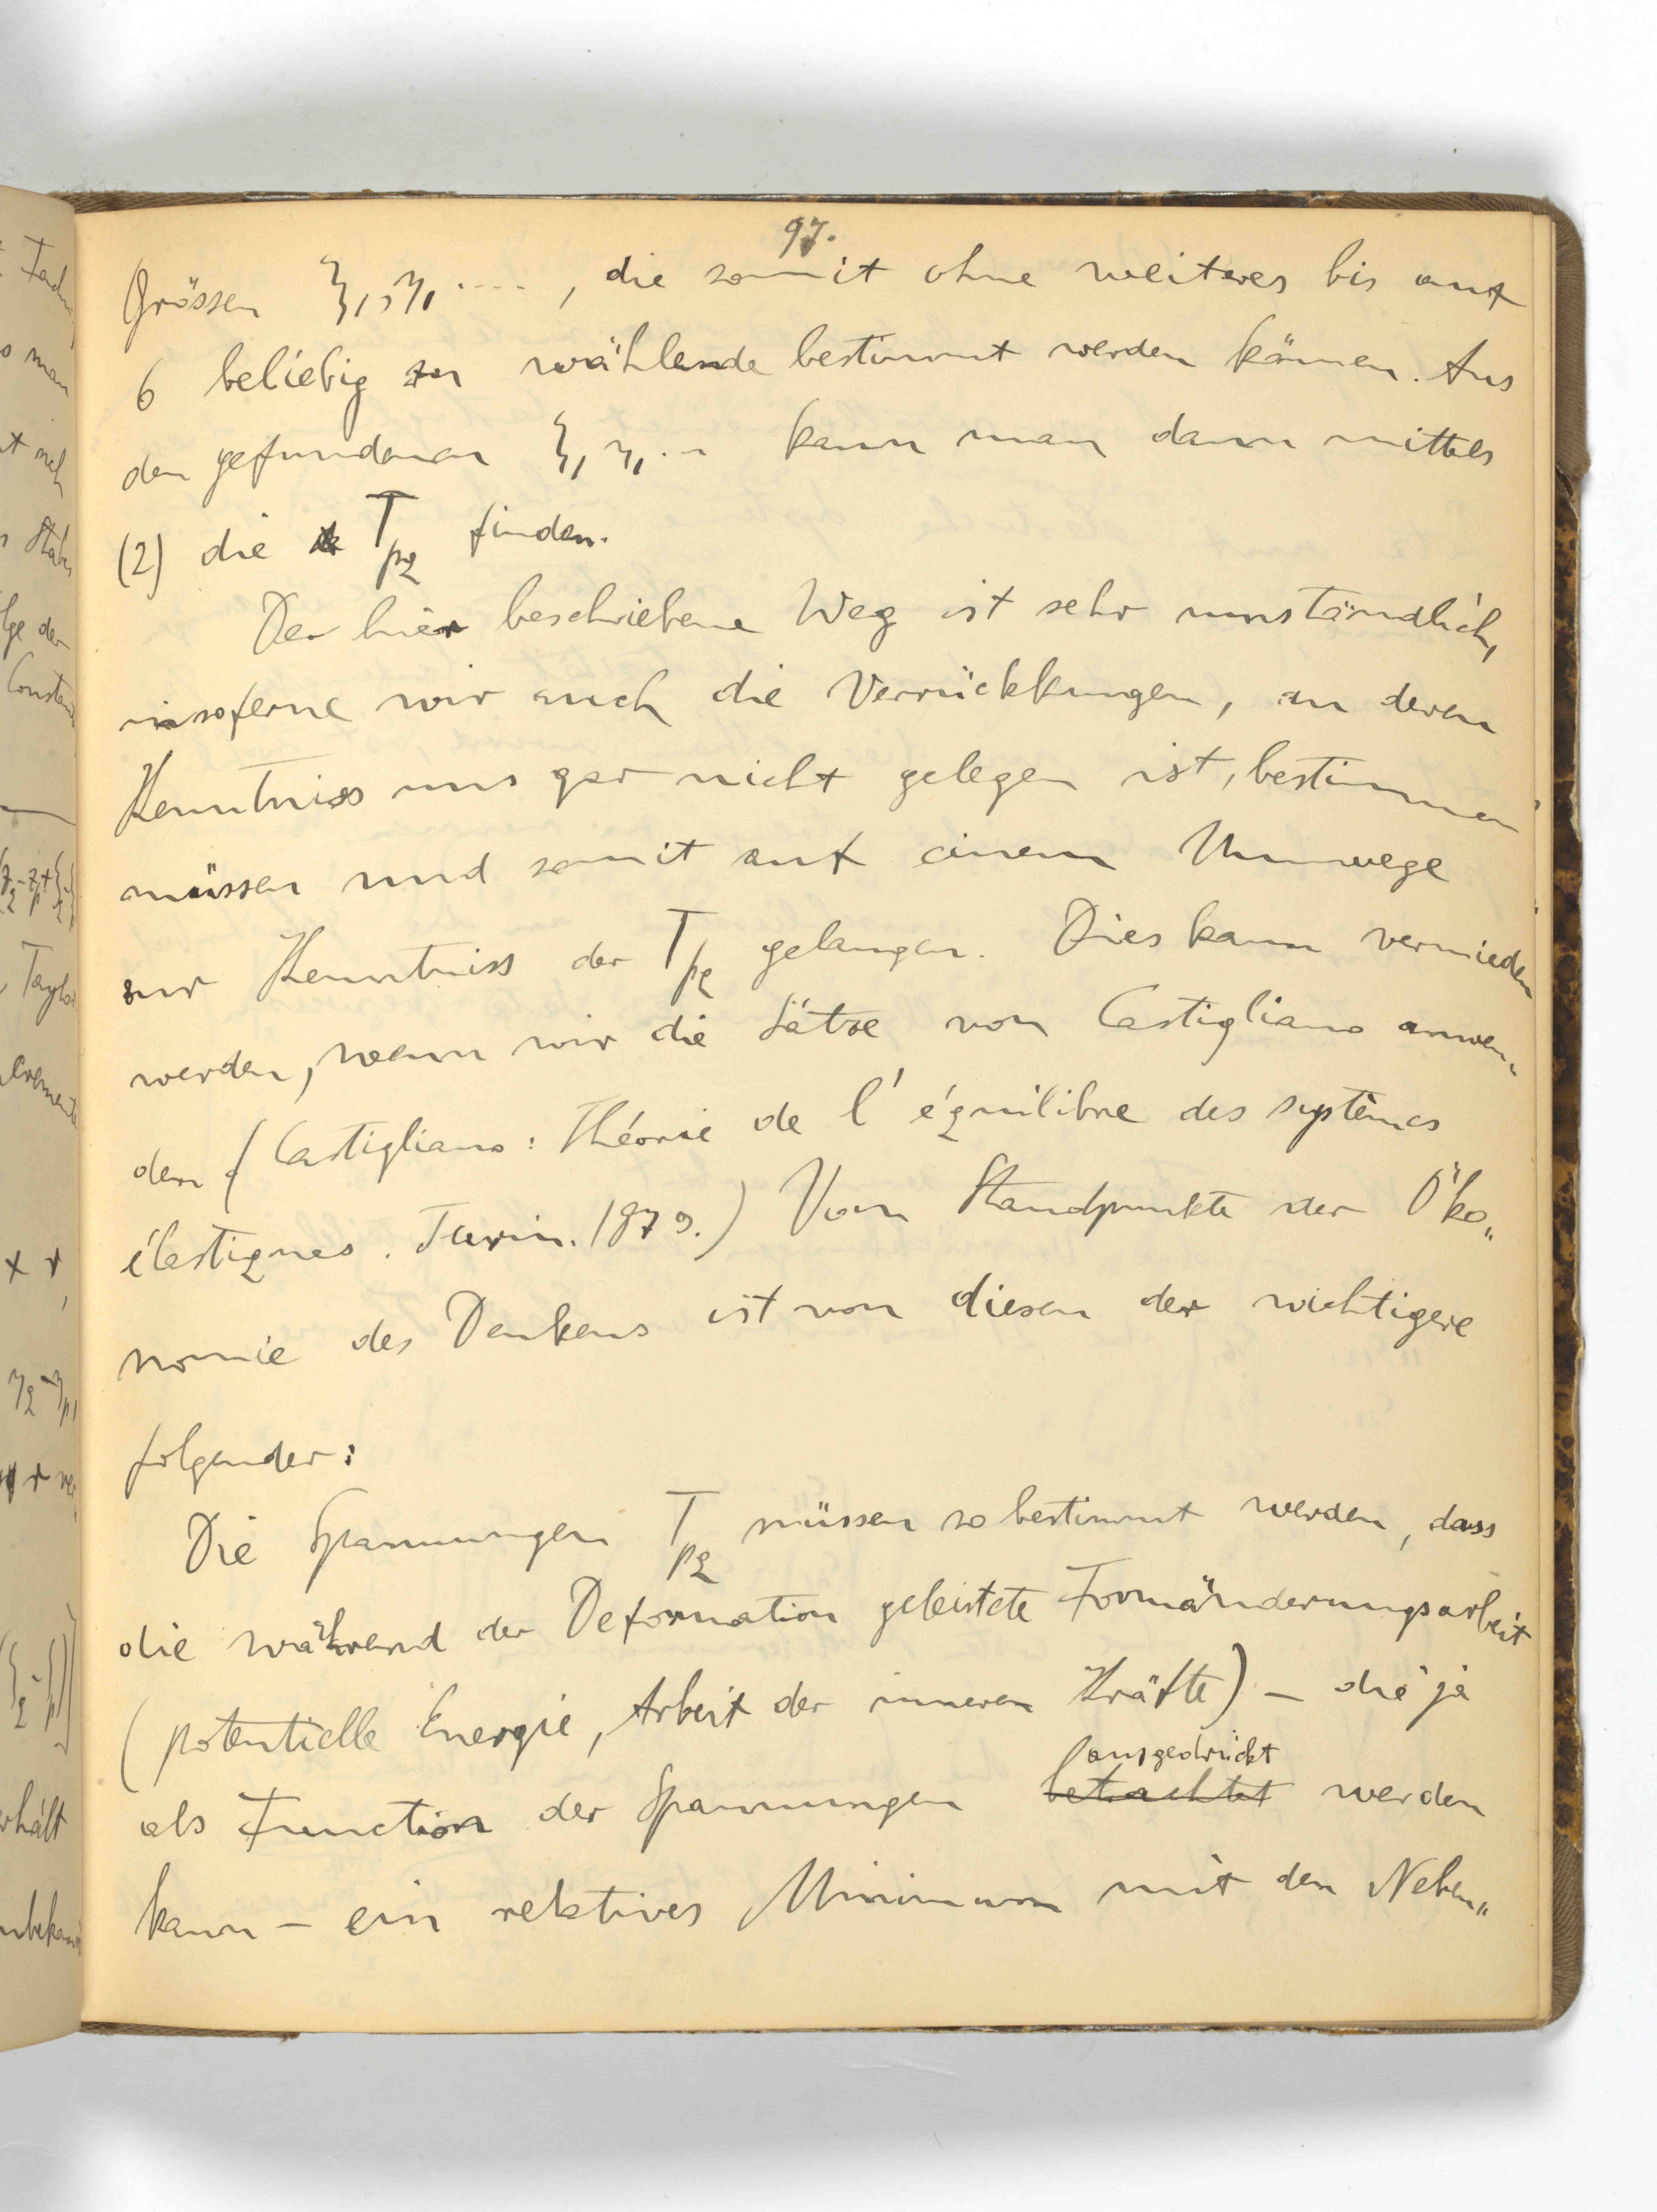 97.
Grössen ξ₁, η₁ ...., die somit ohne weiteres bis auf
6 beliebig zu wählende bestimmt werden können. Aus
den gefundenen ξ₁ η₁ .. kann man dann mittels
(2) die T_pq finden.
Der hier beschriebene Weg ist sehr umständlich,
insoferne wir auch die Verrückkungen, an deren
Kenntniss uns gar nicht gelegen ist, bestimmen
müssen und somit auf einem Umwege
zur Kenntniss der T_pq gelangen. Dies kann vermieden
werden, wenn wir die Sätze von Castigliano anwen„
den (Castigliano: Théorie de l'équilibre des systèmes
élastiques. Turin. 1879.) Vom Standpunkte der Öko„
nomie des Denkens ist von diesen der wichtigere
folgender:
Die Spannungen T_pq müssen so bestimmt werden, dass
die während der Deformation geleistete Formänderungsarbeit
(potentielle Energie, Arbeit der inneren Kräfte) – die ja
ausgedrückt
als Function der Spannungen betrachtet werden
kann – ein relatives Minimum mit den Neben„